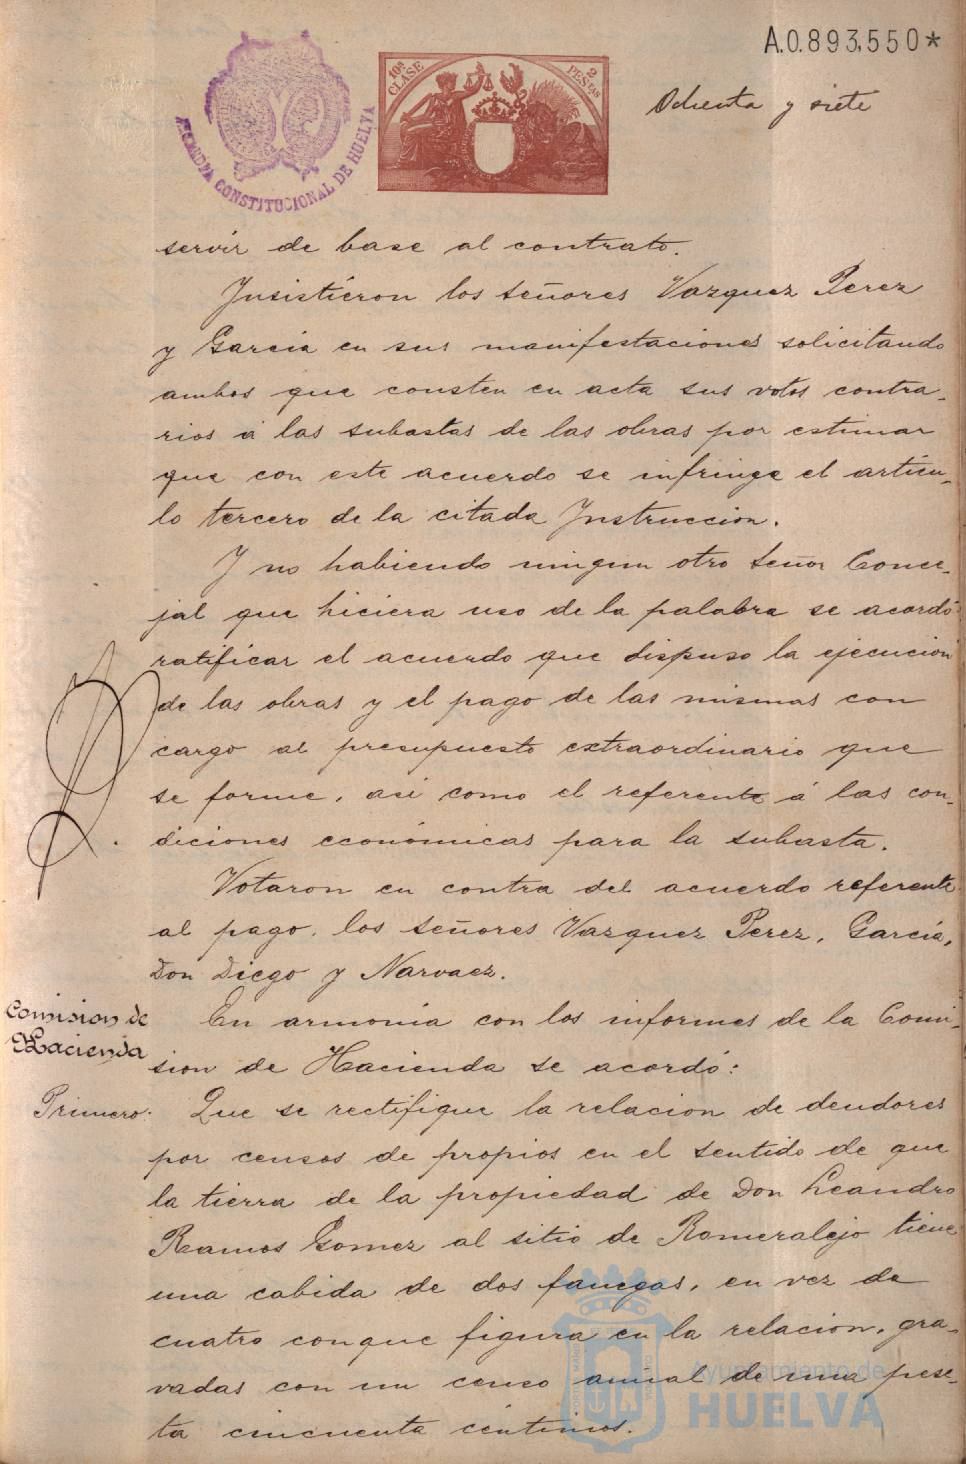 A.0.893,550*
10ª CLASE
2 PESTAS
ALCALDIA CONSTITUCIONAL DE HUELVA
Ochenta y siete
servir de base al contrato.
Insistieron los señores Vazquez Perez
y Garcia en sus manifestaciones solicitando
ambos que consten en acta sus votos contra-
rios á las subastas de las obras por estimar
que con este acuerdo se infringe el articu-
lo tercero de la citada Instruccion.
Y no habiendo ningun otro señor Conce-
jal que hiciera uso de la palabra se acordó
ratificar el acuerdo que dispuso la ejecucion
de las obras y el pago de las mismas con
cargo al presupuesto extraordinario que
se forme, asi como el referente á las con-
diciones económicas para la subasta.
Votaron en contra del acuerdo referente
al pago, los señores Vazquez Perez, Garcia,
Don Diego y Narvaez.
Comision de
Hacienda
En armonía con los informes de la Comi-
sion de Hacienda se acordó:
Primero. Que se rectifique la relacion de deudores
por censos de propios en el sentido de que
la tierra de la propiedad de Don Leandro
Ramos Gomez al sitio de Romeralejo tiene
una cabida de dos fanegas, en vez de
cuatro conque figura en la relacion, gra-
vadas con un censo anual de una pese-
ta cincuenta centimos.
Ayuntamiento de
HUELVA